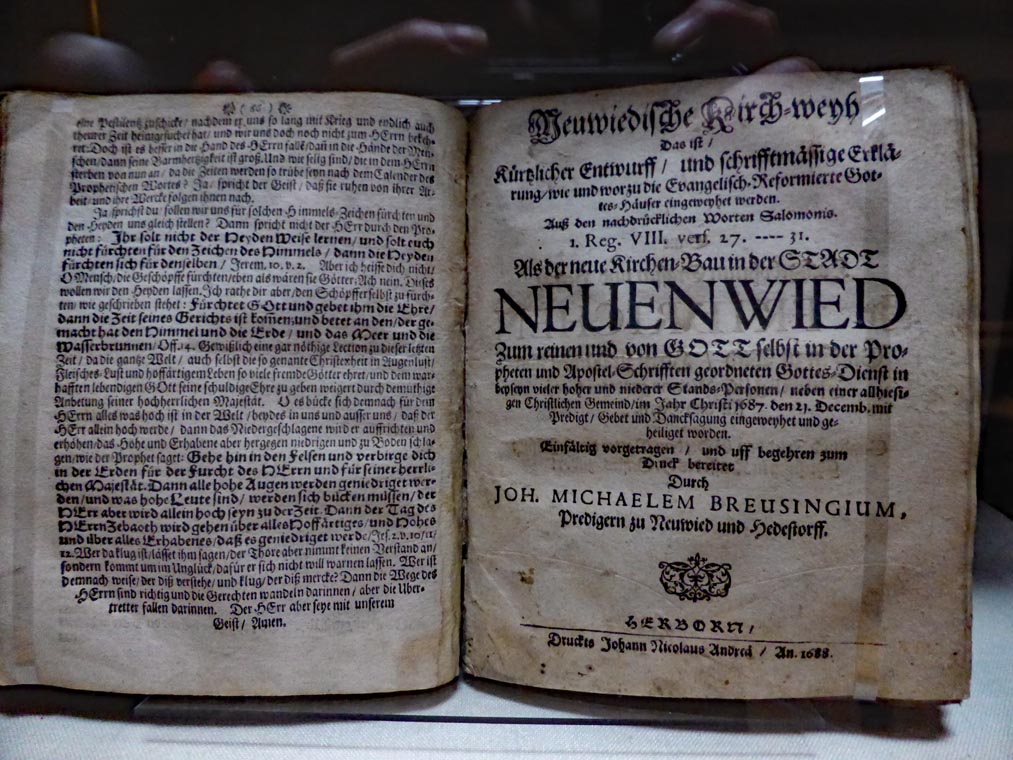 ( 86 )
eine Pestilentz zuschicke / nachdem er uns so lang mit Krieg und endlich auch
theurer Zeit heimgesuchet hat / und wir uns doch noch nicht zum HErrn bekeh-
ret. Doch ist es besser in die Hand des HErrn fallē / daß in die Hände der Men-
schen / dann seine Barmhertzigkeit ist groß. Und wie selig sind / die in dem HErrn
sterben von nun an / da die Zeiten werden so trübe seyn nach dem Calender des
Prophetischen Wortes? Ja / spricht der Geist / daß sie ruhen von ihrer Ar-
beit / und ihre Wercke folgen ihnen nach.
Ja sprichst du / sollen wir uns für solchen Himmels-Zeichen fürchten und
den Heyden uns gleich stellen? Dann spricht nicht der HErr durch den Pro-
pheten: Ihr solt nicht der Heyden Weise lernen / und solt euch
nicht fürchten für den Zeichen des Himmels / dann die Heyden
fürchten sich für denselben / Jerem. 10. v. 2. Aber ich heisse dich nicht /
O Mensch / die Geschöpffe fürchten / eben als wären sie Götter. Ach nein. Dieses
wollen wir den Heyden lassen. Ich rathe dir aber / den Schöpffer selbst zu fürch-
ten / wie geschrieben stehet: Fürchtet GOtt und gebet ihm die Ehre /
dann die Zeit seines Gerichts ist kom̃en; und betet an den / der ge-
macht hat den Himmel und die Erde / und das Meer und die
Wasserbrunnen / Off. 14. Gewißlich eine gar nöthige Lection zu dieser letzten
Zeit / da die gantze Welt / auch selbst die so genante Christenheit in Augenlust /
Fleisches-Lust und hoffärtigem Leben so viele fremde Götter ehret / und dem war-
hafften lebendigen GOtt seine schuldige Ehre zu geben weigert durch demüthige
Anbetung seiner hochherrlichen Majestät. O es bücke sich demnach für dem
HErrn alles was hoch ist in der Welt / beydes in uns und ausser uns / daß der
HErr allein hoch werde / dann das Niedergeschlagene wird er auffrichten und
erhöhen / das Hohe und Erhabene aber hergegen niedrigen und zu Boden schla-
gen / wie der Prophet saget: Gehe hin in den Felsen und verbirge dich
in der Erden für der Furcht des HErrn und für seiner herrli-
chen Majestät. Dann alle hohe Augen werden geniedriget wer-
den / und was hohe Leute sind / werden sich bücken müssen / der
HErr aber wird allein hoch seyn zu der Zeit. Dann der Tag des
HErrn Zebaoth wird gehen über alles Hoffärtiges / und Hohes
und über alles Erhabenes / daß es geniedriget werde / Jes. 2. v. 10 / 11 /
12. Wer da klug ist / lässet ihm sagen / der Thore aber nimmt keinen Verstand an /
sondern kommt um im Unglück / dafür er sich nicht will warnen lassen. Wer ist
demnach weise / der diß verstehe / und klug / der diß mercke? Dann die Wege des
HErrn sind richtig und die Gerechten wandeln darinnen / aber die Uber-
tretter fallen darinnen. Der HErr aber seye mit unserem
Geist / Amen.
Neuwiedische Kirch-weyh
Das ist /
Kürtzlicher Entwurff / und schrifftmässige Erklä-
rung / wie und worzu die Evangelisch-Reformierte Got-
tes-Häuser eingeweyhet werden.
Auß den nachdrücklichen Worten Salomonis.
1. Reg. VIII. vers. 27. ---- 31.
Als der neue Kirchen-Bau in der STADT
NEUENWIED
Zum reinen und von GOTT selbst in der Pro-
pheten und Apostel-Schrifften geordneten Gottes-Dienst in
beyseyn vieler hoher und niederer Stands-Personen / neben einer allhiesi-
gen Christlichen Gemeind / im Jahr Christi 1687. den 21. Decemb. mit
Predigt / Gebet und Dancksagung eingeweyhet und ge-
heiliget worden.
Einfältig vorgetragen / und uff begehren zum
Druck bereitet
Durch
JOH. MICHAELEM BREUSINGIUM,
Predigern zu Neuwied und Hedestorff.
HERBORN /
Druckts Johann Nicolaus Andreä / An. 1688.